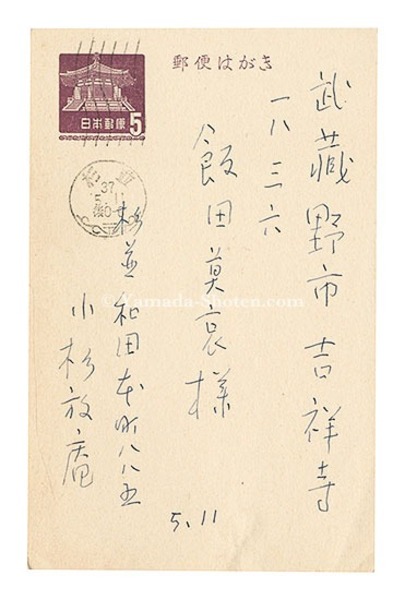 郵便はがき
日本郵便
5
武蔵野市吉祥寺
一八三六
飯田莫哀様
杉並
37
5.11
杉並和田本町八八五
小杉放庵
5.11
© Yamada-Shoten.com